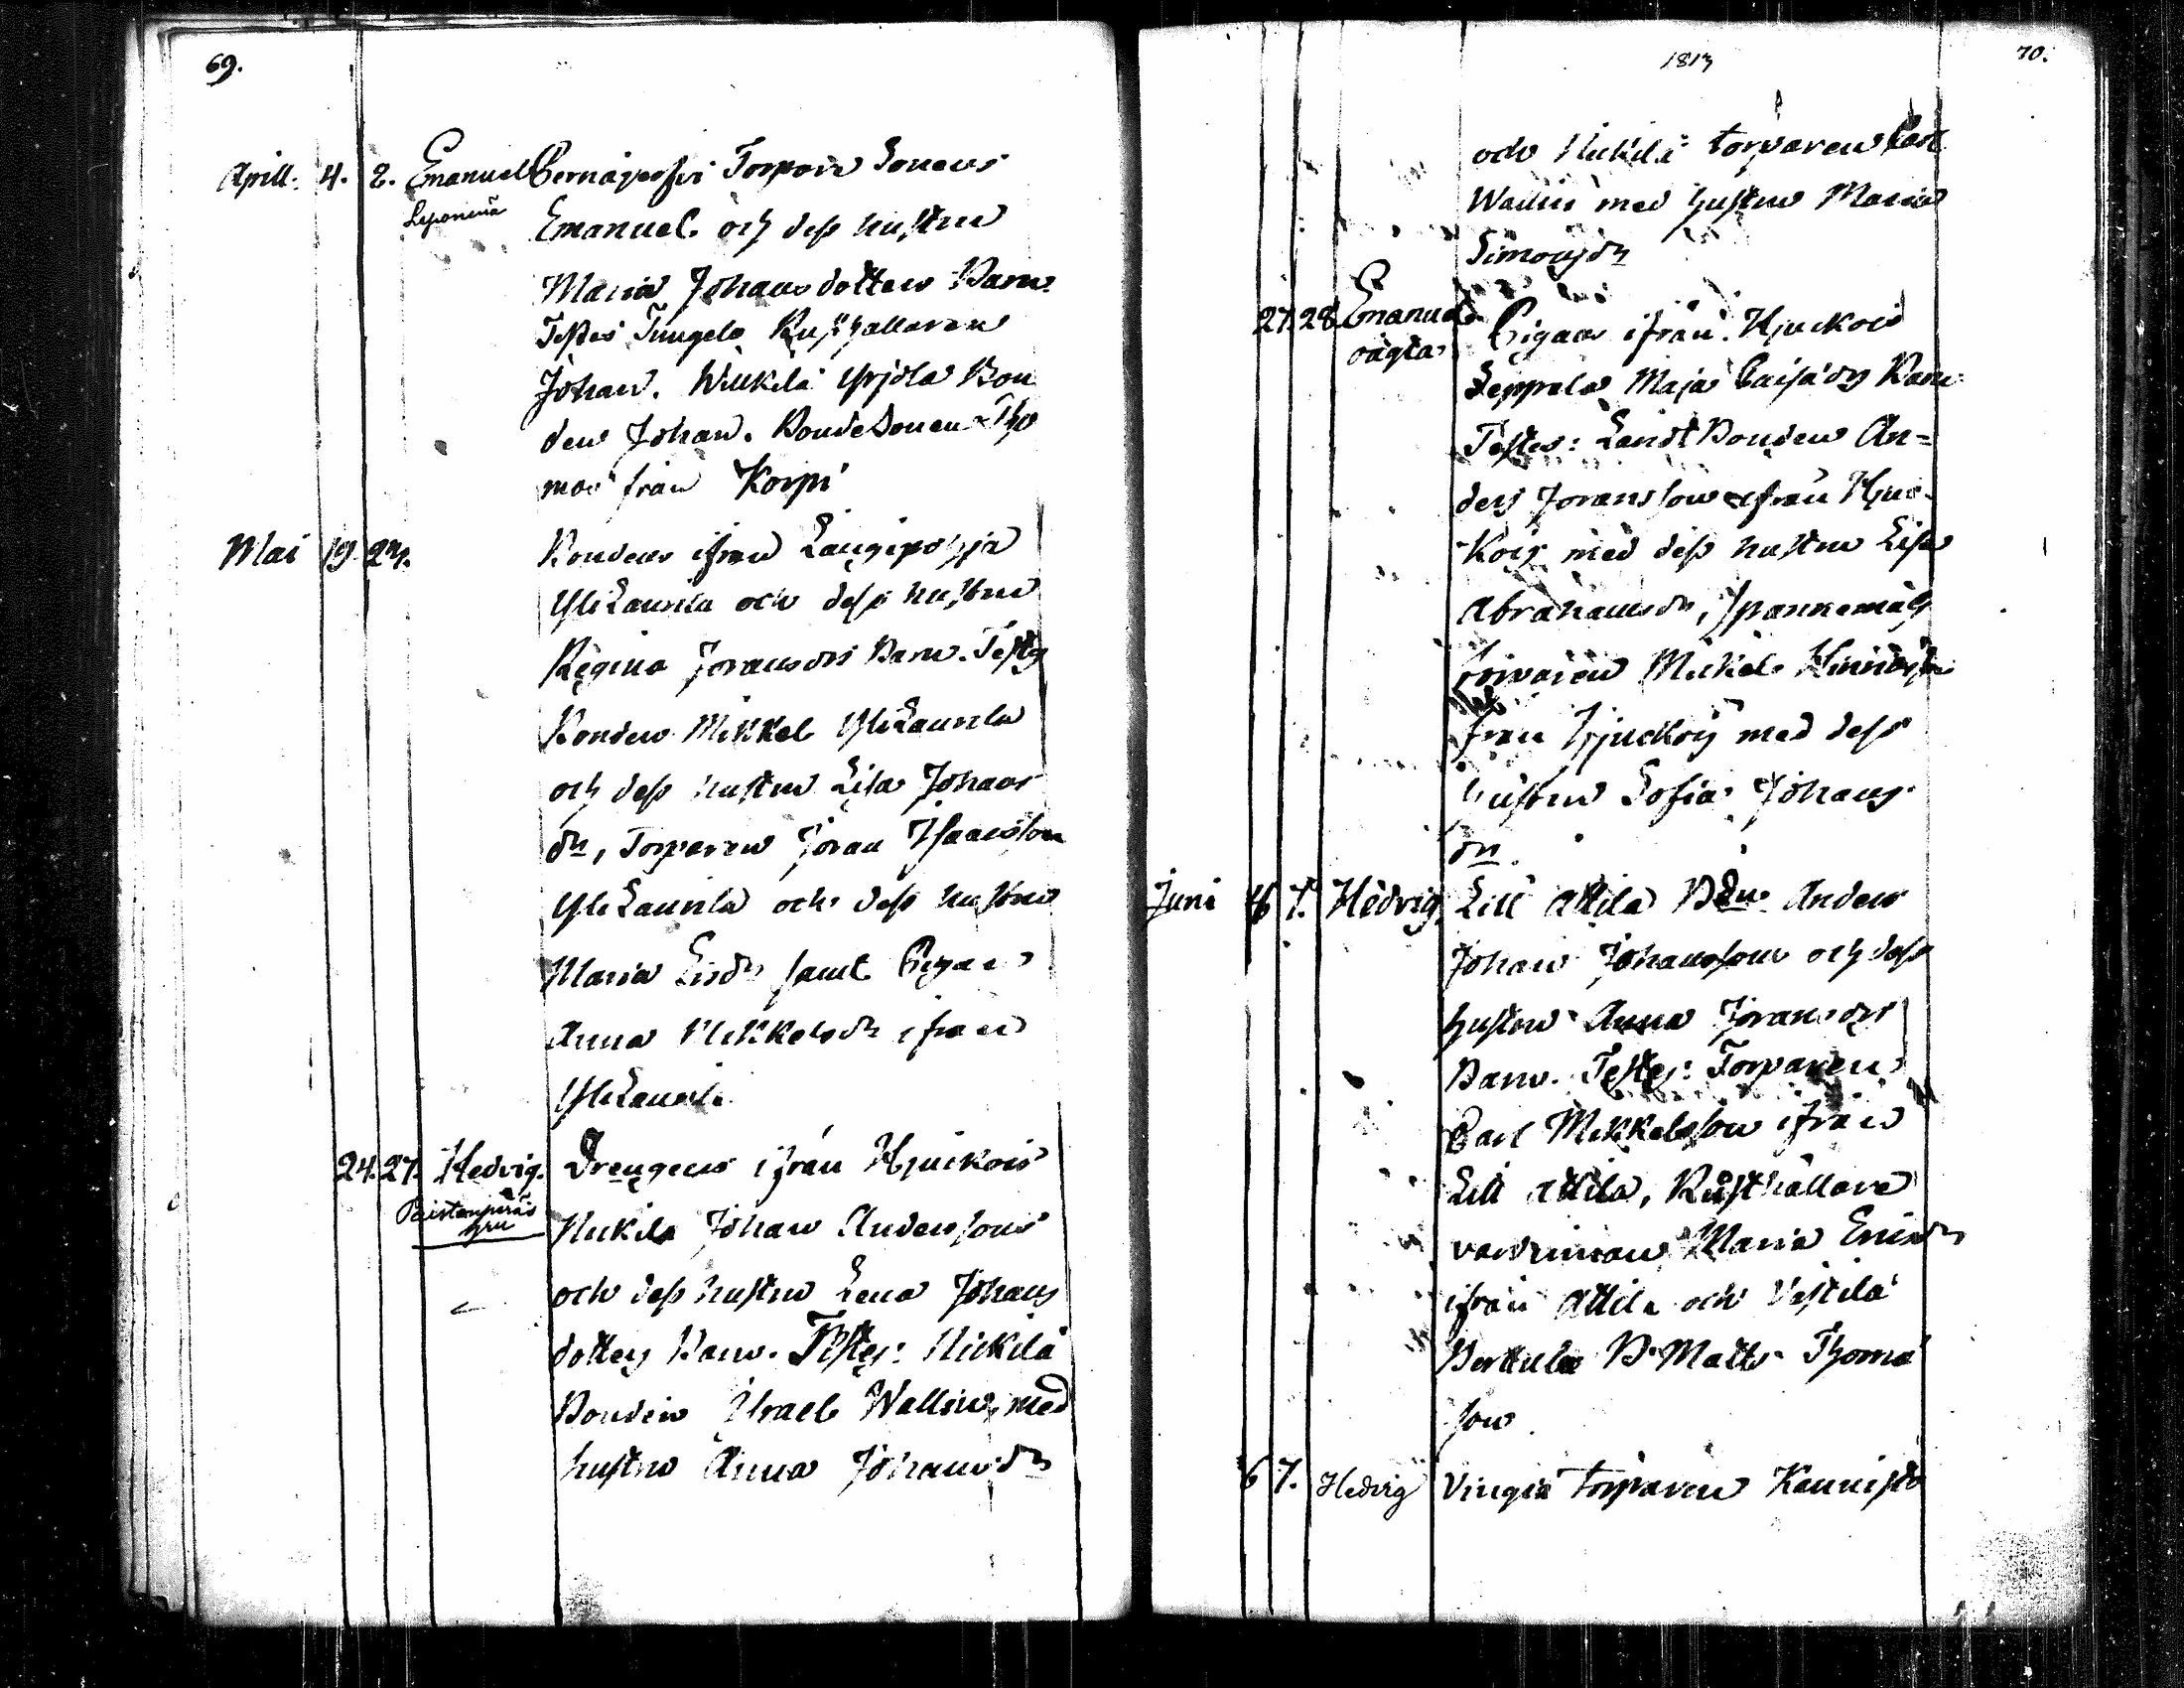 69.
Aprill. 4. 8. Emanuel Pernäjerfvi Torpare Sonens
Leponemä
Emanuel. och dess hustru
Maria Johans dotters Barn.
Testes Tungelo Rusthållaren
Johan. Willkilä Yrjola Bon
den Johan. Bonde Sonen Tho
mas från Korpi
Mai 19. 23. Bondens ifrån Langipohja
YliLaurila och dess hustru
Regina Joransdrs Barn. Testes
Bonden Mikkel YliLaurila
och dess hustru Lisa Johans
dr, Torparen Joran Isaacsson
YliLaurila och dess hustru
Maria Eriсdr samt Pigan
Anna Mikkelsdr ifrån
YliLaurila
24. 27. Hedvig. Drengens ifrån Hjuikois
Paistenperäs
Nickila Johan Anderssons
och dess hustru Lena Johans
dotters Barn. Testes: Nickilä
Bonden Israel Wallin, med
hustru Anna Johansdr
1813 70.
och Nickilä torparen Carl
Wallin med hustru Maria
Simonsdr
27. 28 Emanuel Pigans ifrån Hjuckois
oägta
Seppala Maja Caisadrs Barn
Testes: Landt Bonden An=
ders Joransson ifrån Hjuc-
kois med dess hustru Lisa
Abrahamsdr,
Torparen Mickel
från Hjuckois med dess
hustru Sofia Johans
dr.
Juni 6 7. Hedvig Lill Attila Anders
Johan Johanssons och dess
hustru Anna Joransdrs
Barn. Testes: Torparen
Carl Mikkelsson ifrån
Lill Attila, Rusthållare
vardinnan Maria Ericsdr
ifrån Attila och Vestilä
Berttula B. Matts Thoma
son
6 7. Hedvig Vingiä torparen Kannisto